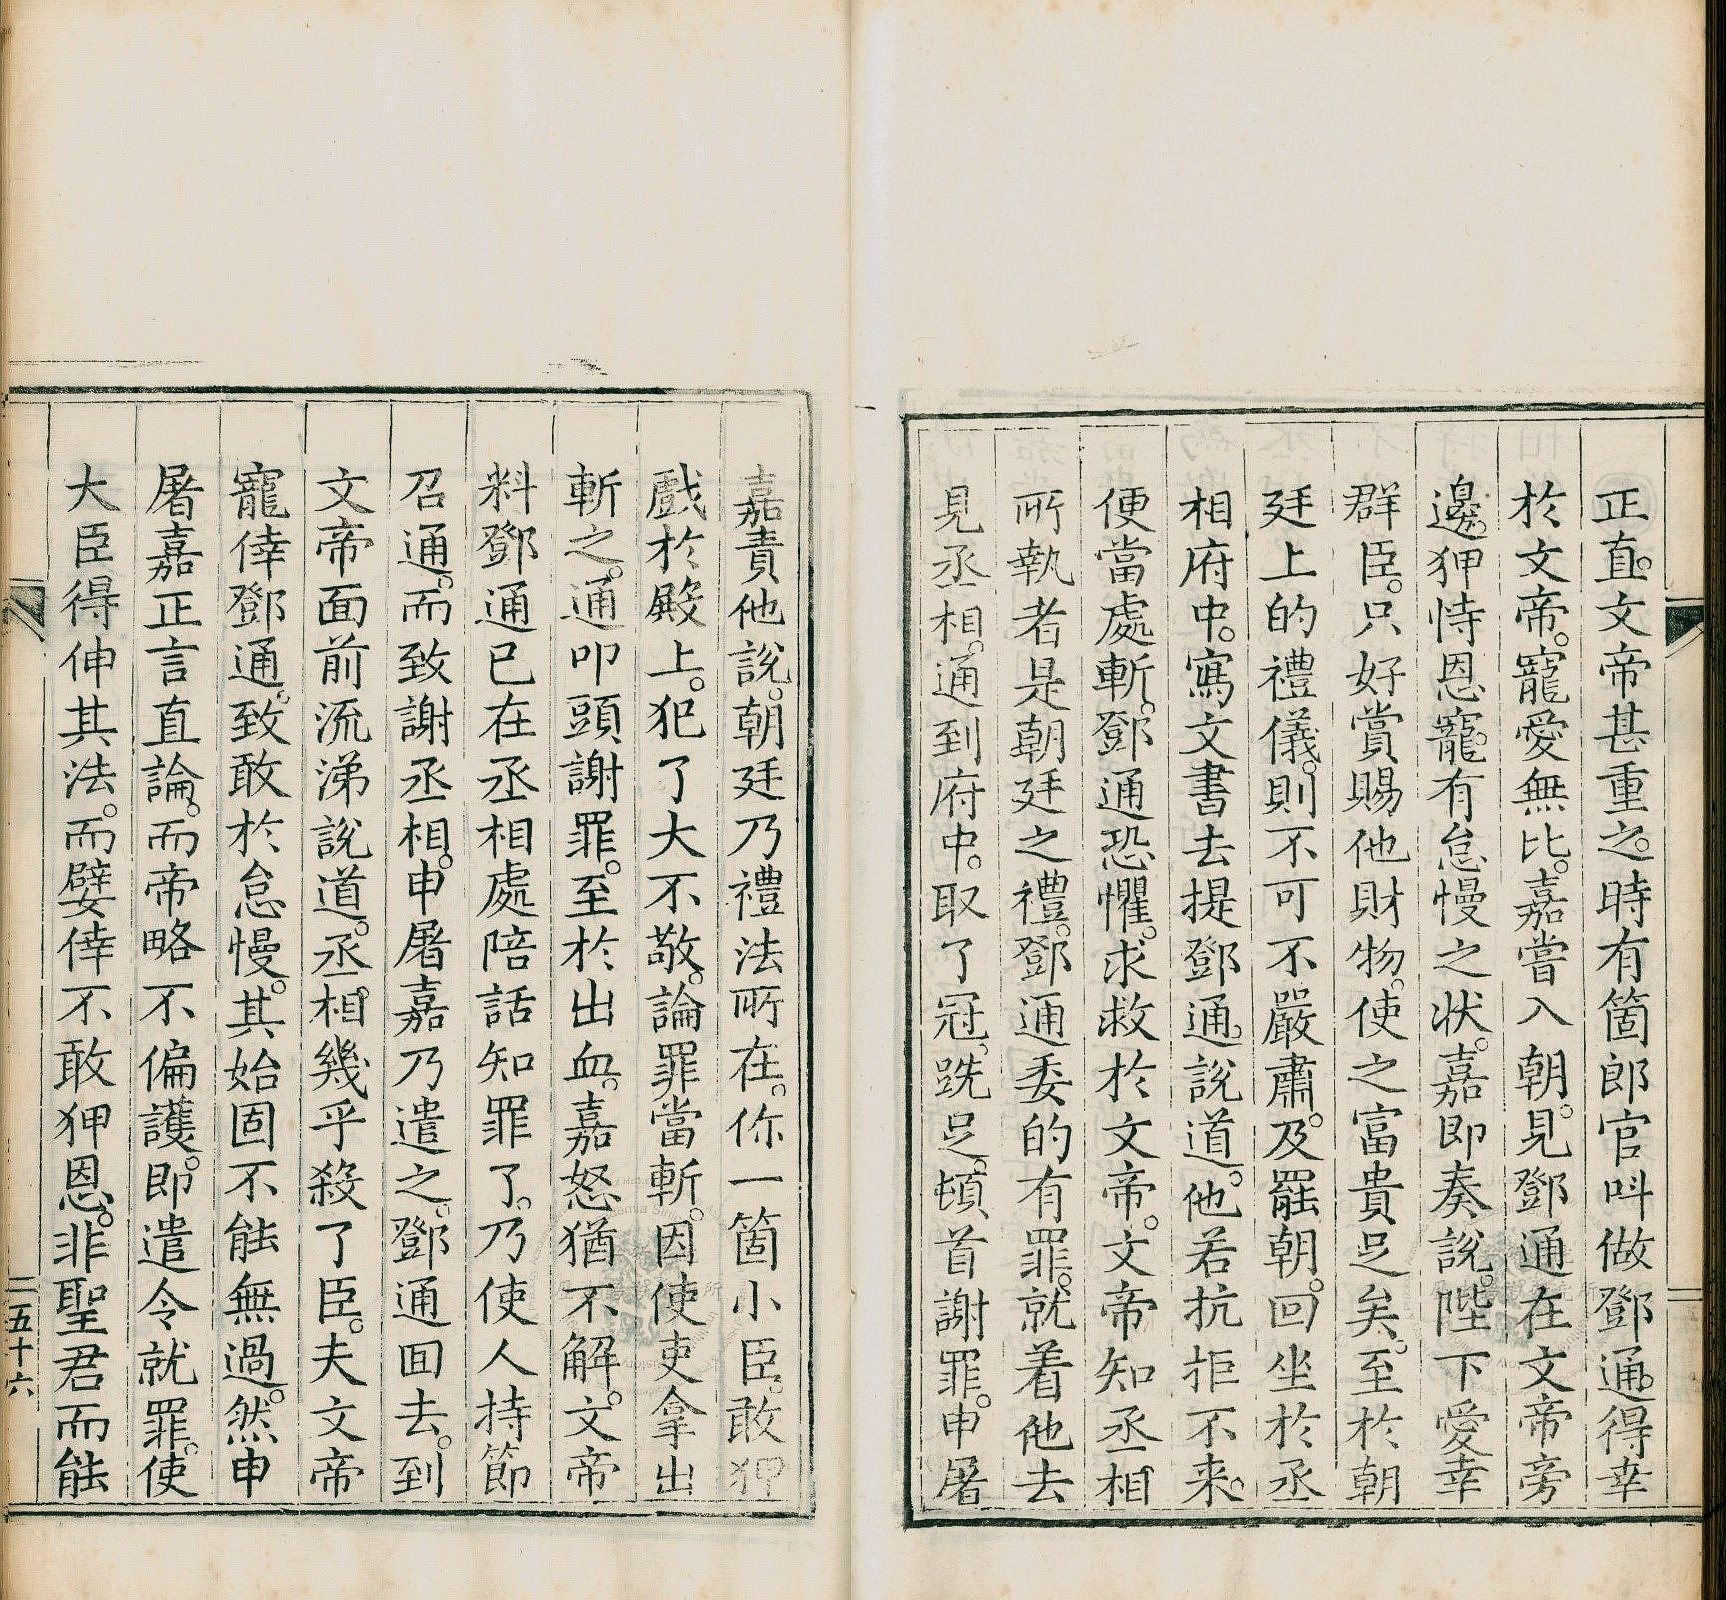 正直。文帝甚重之。時有箇郎官呌做鄧通。得幸
於文帝。寵愛無比。嘉嘗入朝。見鄧通在文帝旁
邊。狎恃恩寵。有怠慢之狀。嘉即奏說。陛下愛幸
群臣。只好賞賜他財物。使之富貴足矣。至於朝
廷上的禮儀。則不可不嚴肅。及罷朝。回坐於丞
相府中。寫文書去提鄧通。說道。他若抗拒不来。
便當處斬。鄧通恐懼。求救於文帝。文帝知丞相
所執者是朝廷之禮。鄧通委的有罪。就着他去
見丞相。通到府中。取了冠。跣足。頓首謝罪。申屠
嘉責他說。朝廷乃禮法所在。你一箇小臣。敢狎
戲於殿上。犯了大不敬。論罪當斬。因使吏拿出
斬之。通叩頭謝罪。至於出血。嘉怒猶不解。文帝
料鄧通已在丞相處陪話知罪了。乃使人持節
召通。而致謝丞相。申屠嘉乃遣之。鄧通回去。到
文帝面前流涕說道。丞相幾乎殺了臣。夫文帝
寵倖鄧通。致敢於怠慢。其始固不能無過。然申
屠嘉正言直論。而帝略不偏護。即遣令就罪。使
大臣得伸其法。而嬖倖不敢狎恩。非聖君而能
二五十六